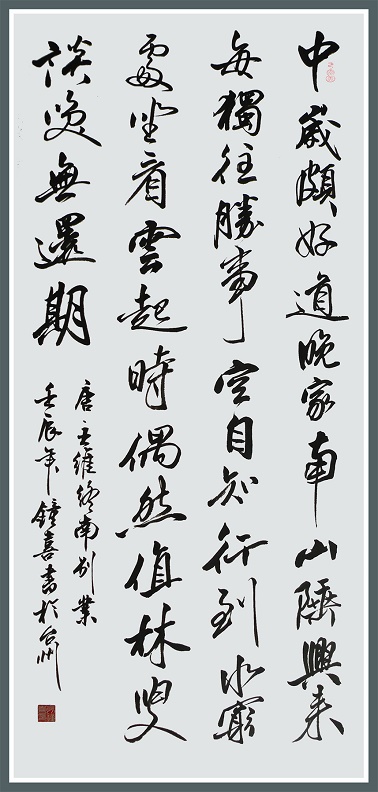 中歲頗好道晚家南山陲興来
每獨往勝事空自知行到水窮
處坐看雲起時偶然值林叟
談笑無還期
唐王維終南别業
壬辰年鐘喜書於台州